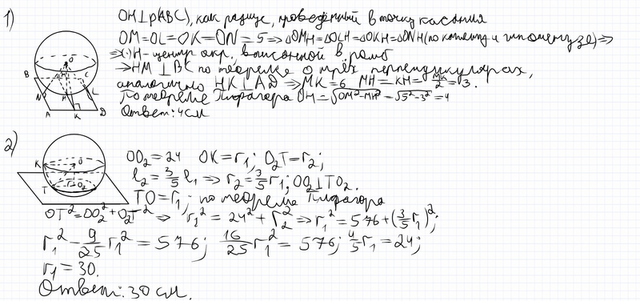 1)
OH⊥p(ABC), как радиус, проведённый в точку касания
OM=OL=OK=ON=5⇒△OMH=△OLH=△OKH=△ONH(по катету и гипотенузе)⇒
⇒(·)H-центр окр. вписанной в ромб
⇒HM⊥BC по теореме о трёх перпендикулярах,
аналогично HK⊥AD ⇒MK=6 MH=KH=MK/2=3.
По теореме Пифагора OH=√OM²-MH²=√5²-3²=4
Ответ: 4см
B O C M H N L A K D
2)
OO₂=24 OK=r₁; O₂T=r₂;
l₂=3/5 l₁ ⇒ r₂=3/5 r₁; OO₂⊥TO₂.
TO=r₁; по теореме Пифагора
K O T O₂
OT²=OO₂²+O₂T² ⇒ r₁²=24²+r₂²⇒r₁²=576+(3/5 r₁)²;
r₁²-9/25 r₁²=576; 16/25 r₁²=576; 4/5 r₁=24;
r₁=30.
Ответ: 30 см.